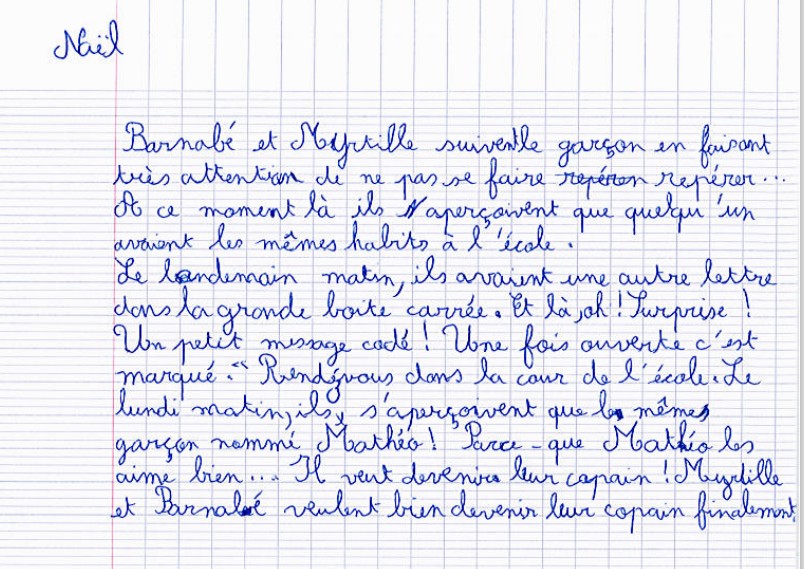 Naël
Barnabé et Myrtille suivent le garçon en faisant
très attention de ne pas se faire repérer repérer...
A ce moment là ils aperçoivent que quelqu'un
avaient les mêmes habits à l'école.
Le landemain matin, ils avaient une autre lettre
dans la grande boite carrée. Et là, oh ! Surprise !
Un petit message codé ! Une fois ouverte c'est
marqué : " Rendézvous dans la cour de l'école. Le
lundi matin, ils s'aperçoivent que le même
garçon nommé Mathéo ! Parce-que Mathéo les
aime bien... Il veut devenir leur copain ! Myrtille
et Barnabé veulent bien devenir leur copain finalement.